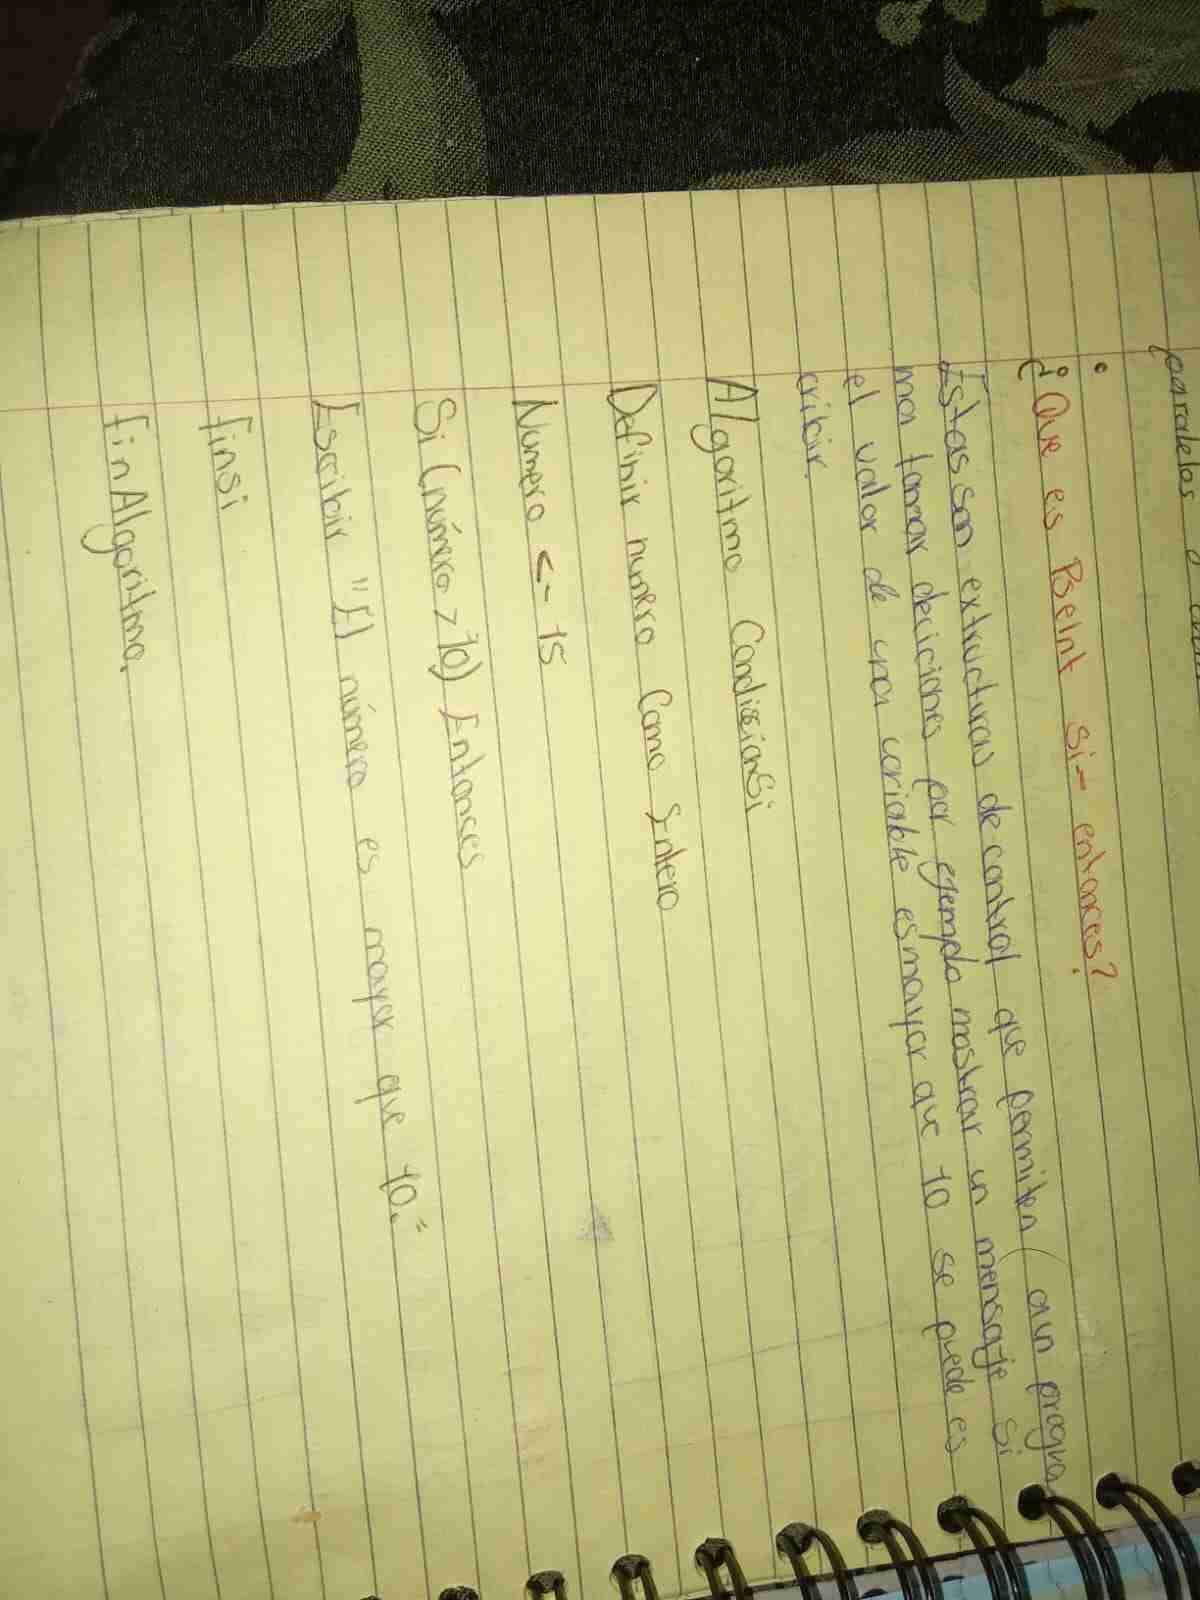 paralelos y
¿Que es PseInt si- entonces?
Estas son extructuras de control que permiten aun progra
ma tomar deciciones por ejemplo mostrar un mensaje si
el valor de una variable es mayor que 10 se puede es
cribir.
Algoritmo CondicionSi
Definir numero Como Entero
Numero <- 15
Si (número > 10) Entonces
Escribir "El número es mayor que 10."
finsi
finAlgoritmo.